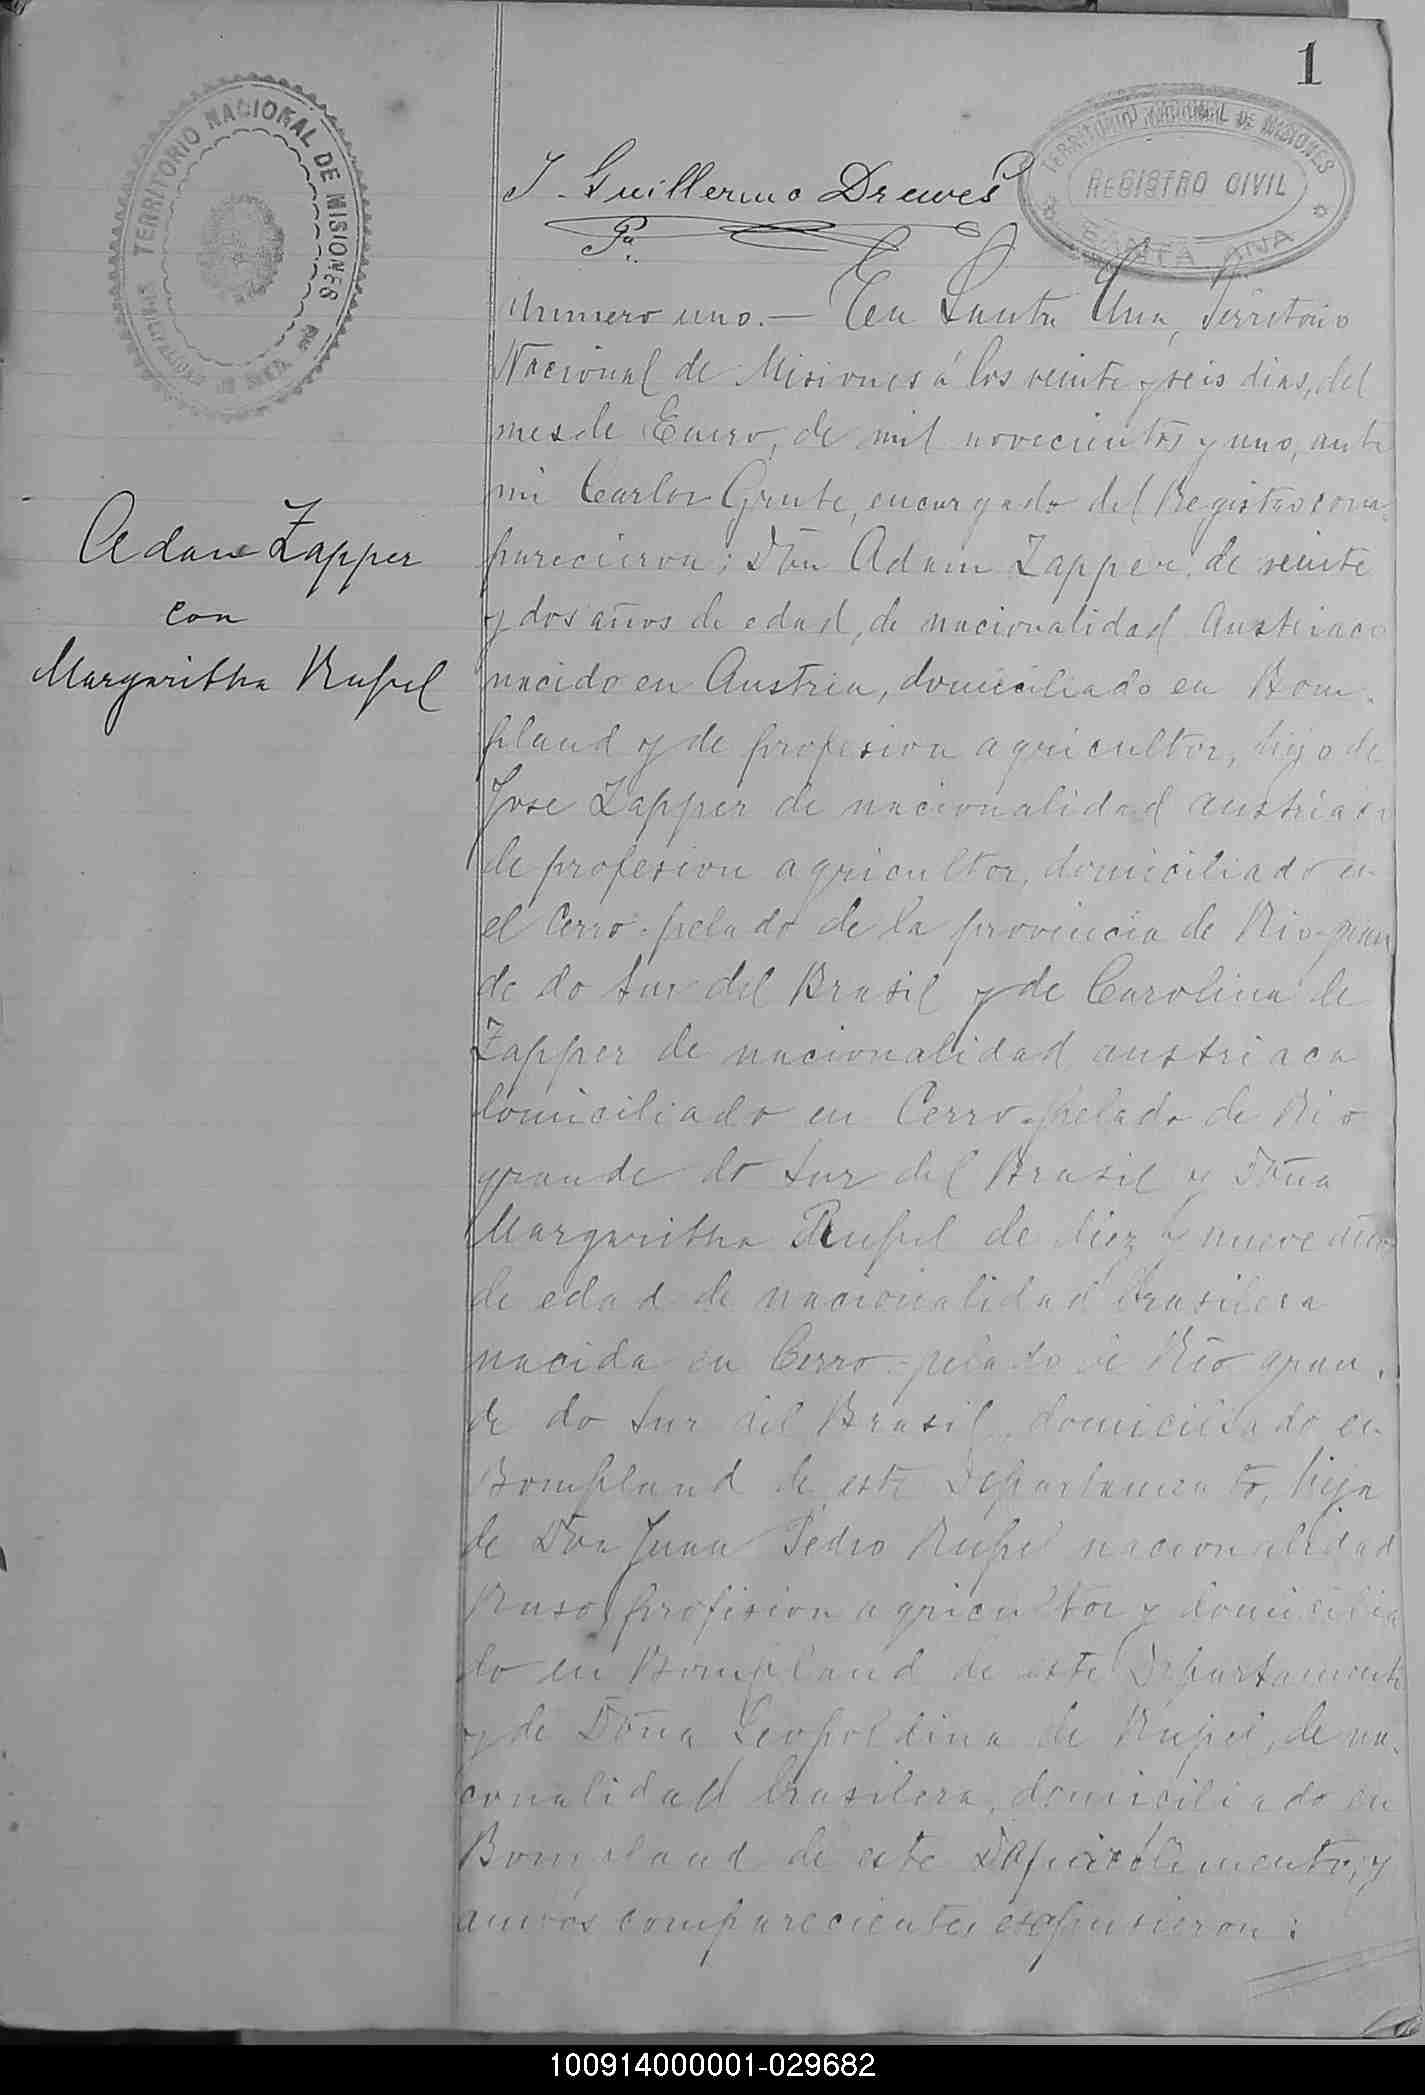 1
TERRITORIO NACIONAL DE MISIONES
TERRITORIO NACIONAL DE MISIONES
REGISTRO CIVIL
SANTA ANA
J. Guillermo Drewes
Pte.
Numero uno. — En Santa Ana, Territorio
Nacional de Misiones á los veinte y seis dias, del
mes de Enero, de mil novecientos y uno, ante
mi Carlos encargado del Registro com-
parecieron: Don Adam Zapper, de veinte
y dos años de edad, de nacionalidad Austriaco
nacido en Austria, domiciliado en Bom-
pland y de profesion agricultor, hijo de
Jose Zapper de nacionalidad austriaco
de profesion agricultor, domiciliado en
el Cerro-pelado de la provincia de Rio-gran
de do Sur del Brasil y de Carolina de
Zapper de nacionalidad austriaca
domiciliado en Cerro-pelado de Rio
grande do Sur del Brasil y Doña
Margaritha Rupel de diez y nueve años
de edad de nacionalidad Brasilera
nacida en Cerro-pelado de Rio gran-
de do Sur del Brasil, domiciliado en
Bompland de este Departamento, hija
de Don Juan Pedro Rupel nacionalidad
Ruso, profision agricultor y domicilia
do en Bompland de este Departamento
y de Doña Leopoldina de Rupel, de na-
conalidad brasilera, domiciliado en
Bompland de este y
amvos comparecientes expusieron:
Adam Zapper
con
Margaritha Rupel
100914000001-029682